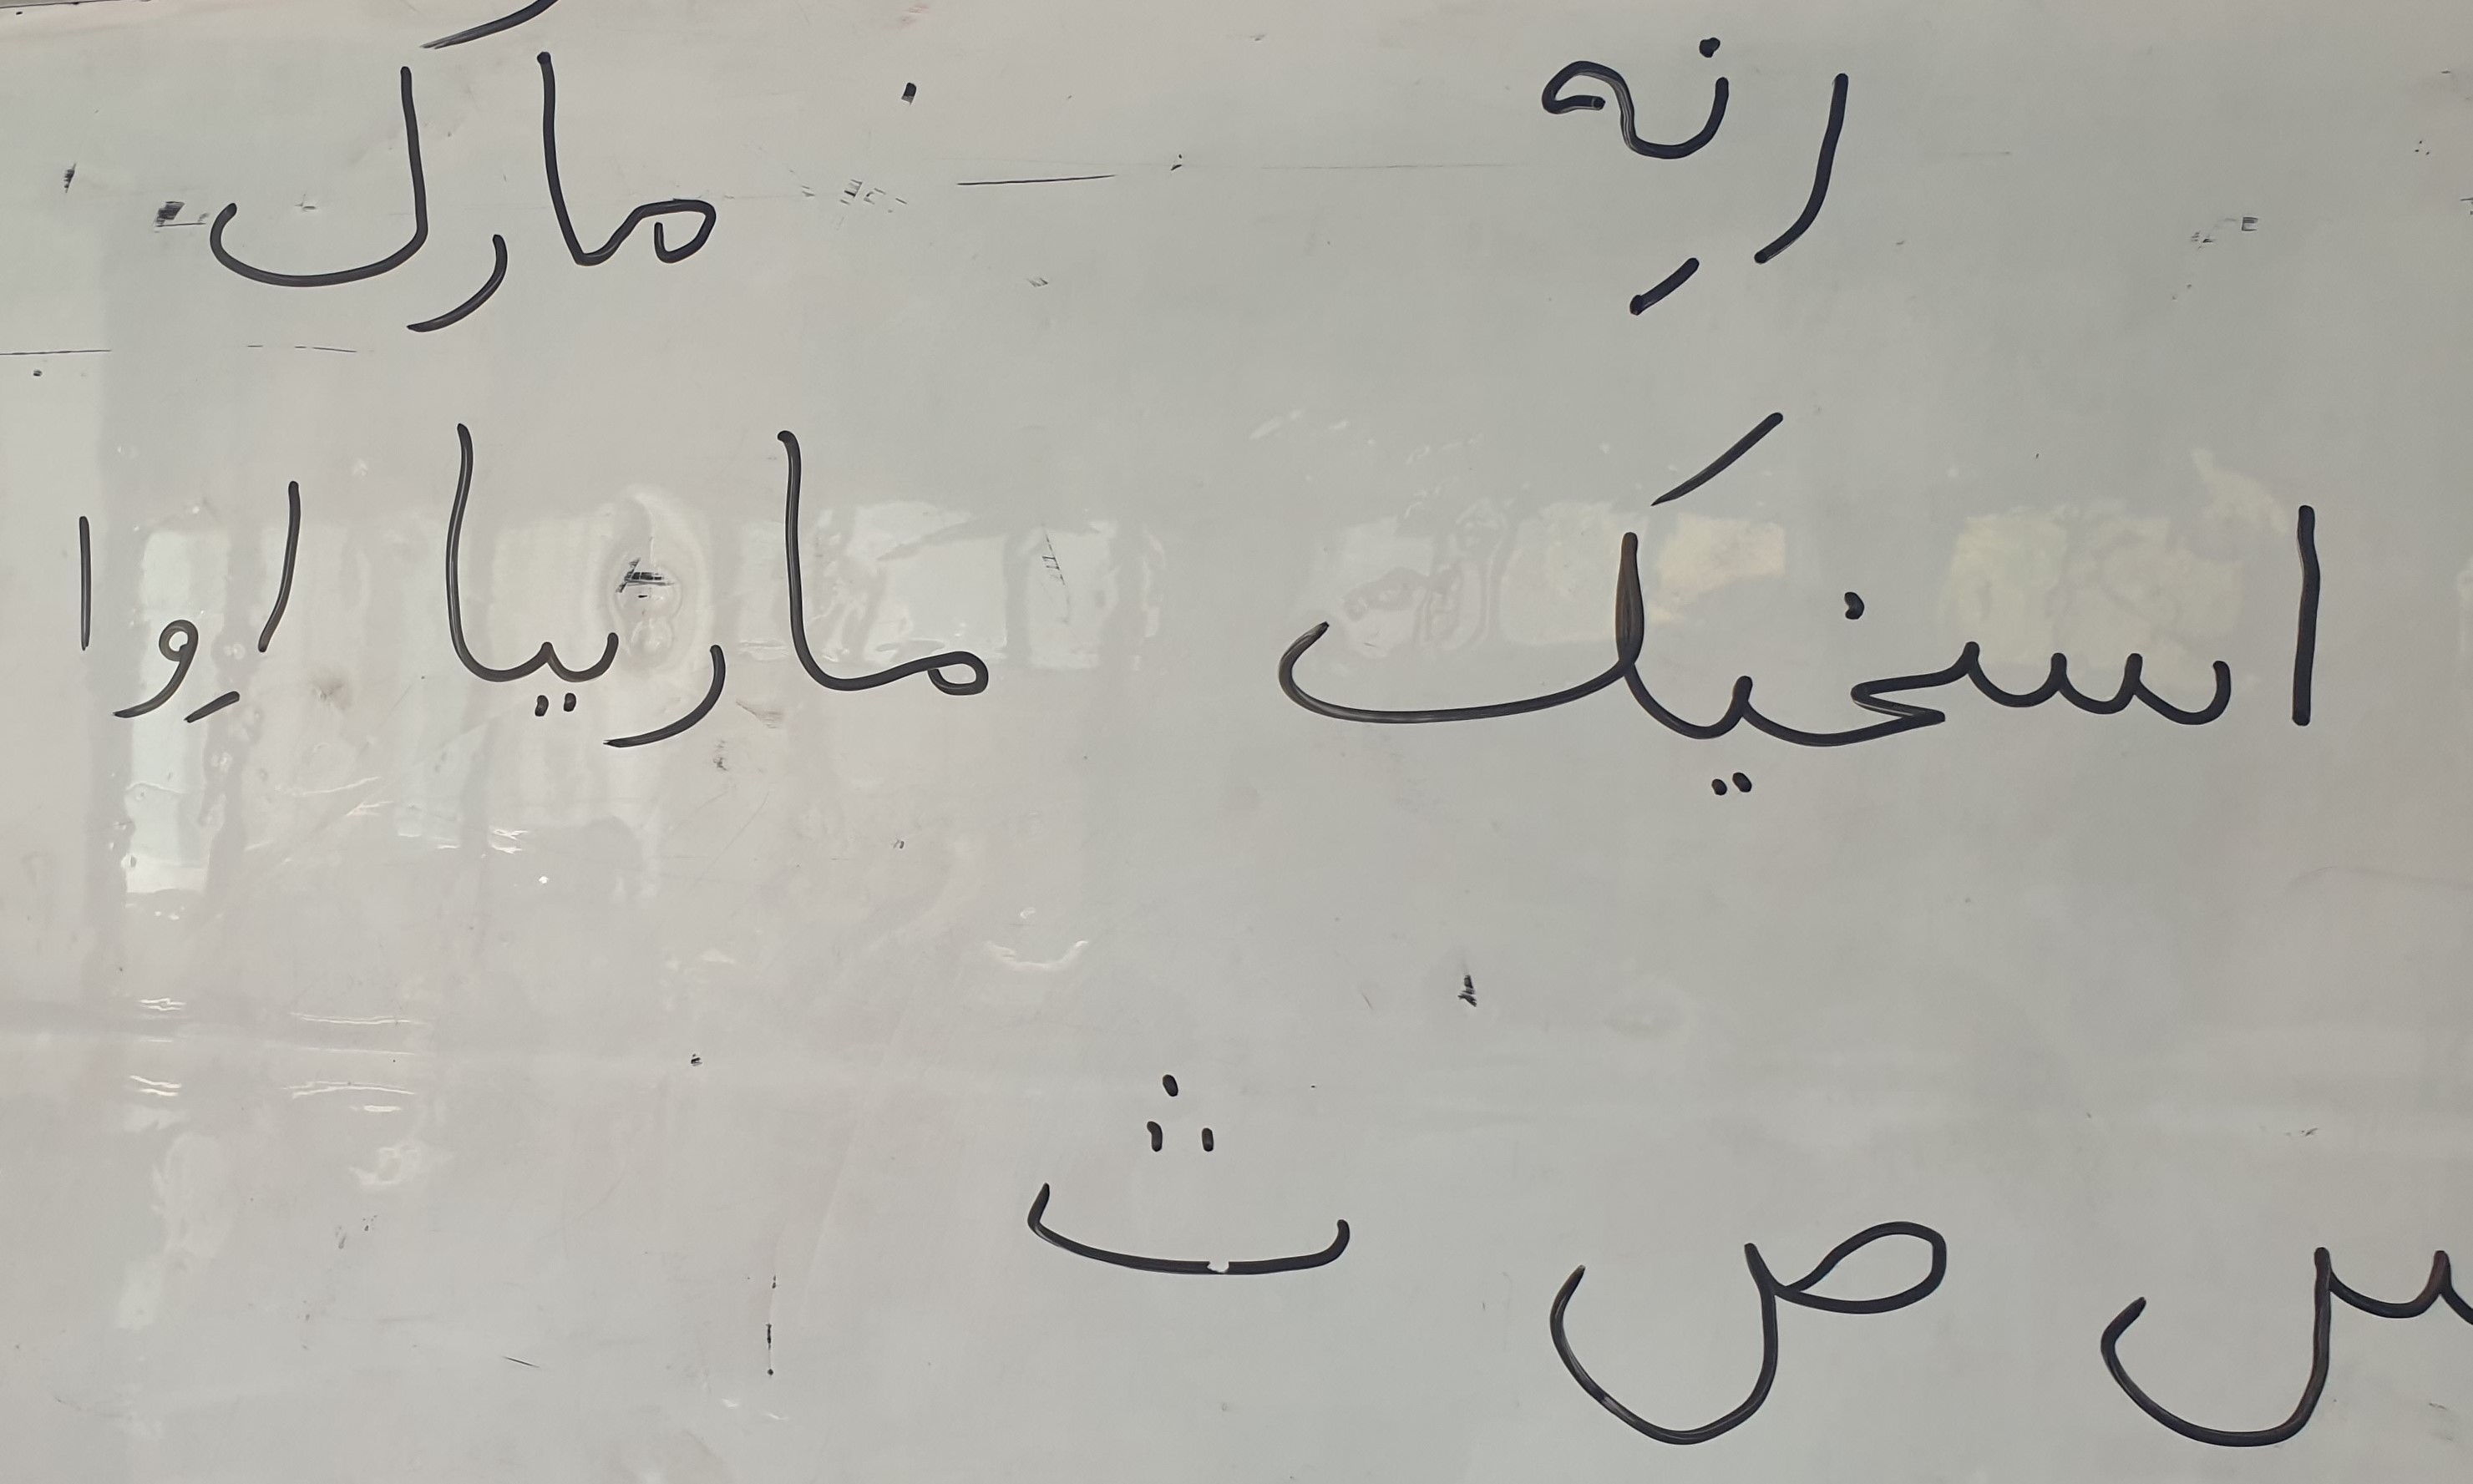 رنِه مارک
اسخیک ماریا اِوا
س ص ث